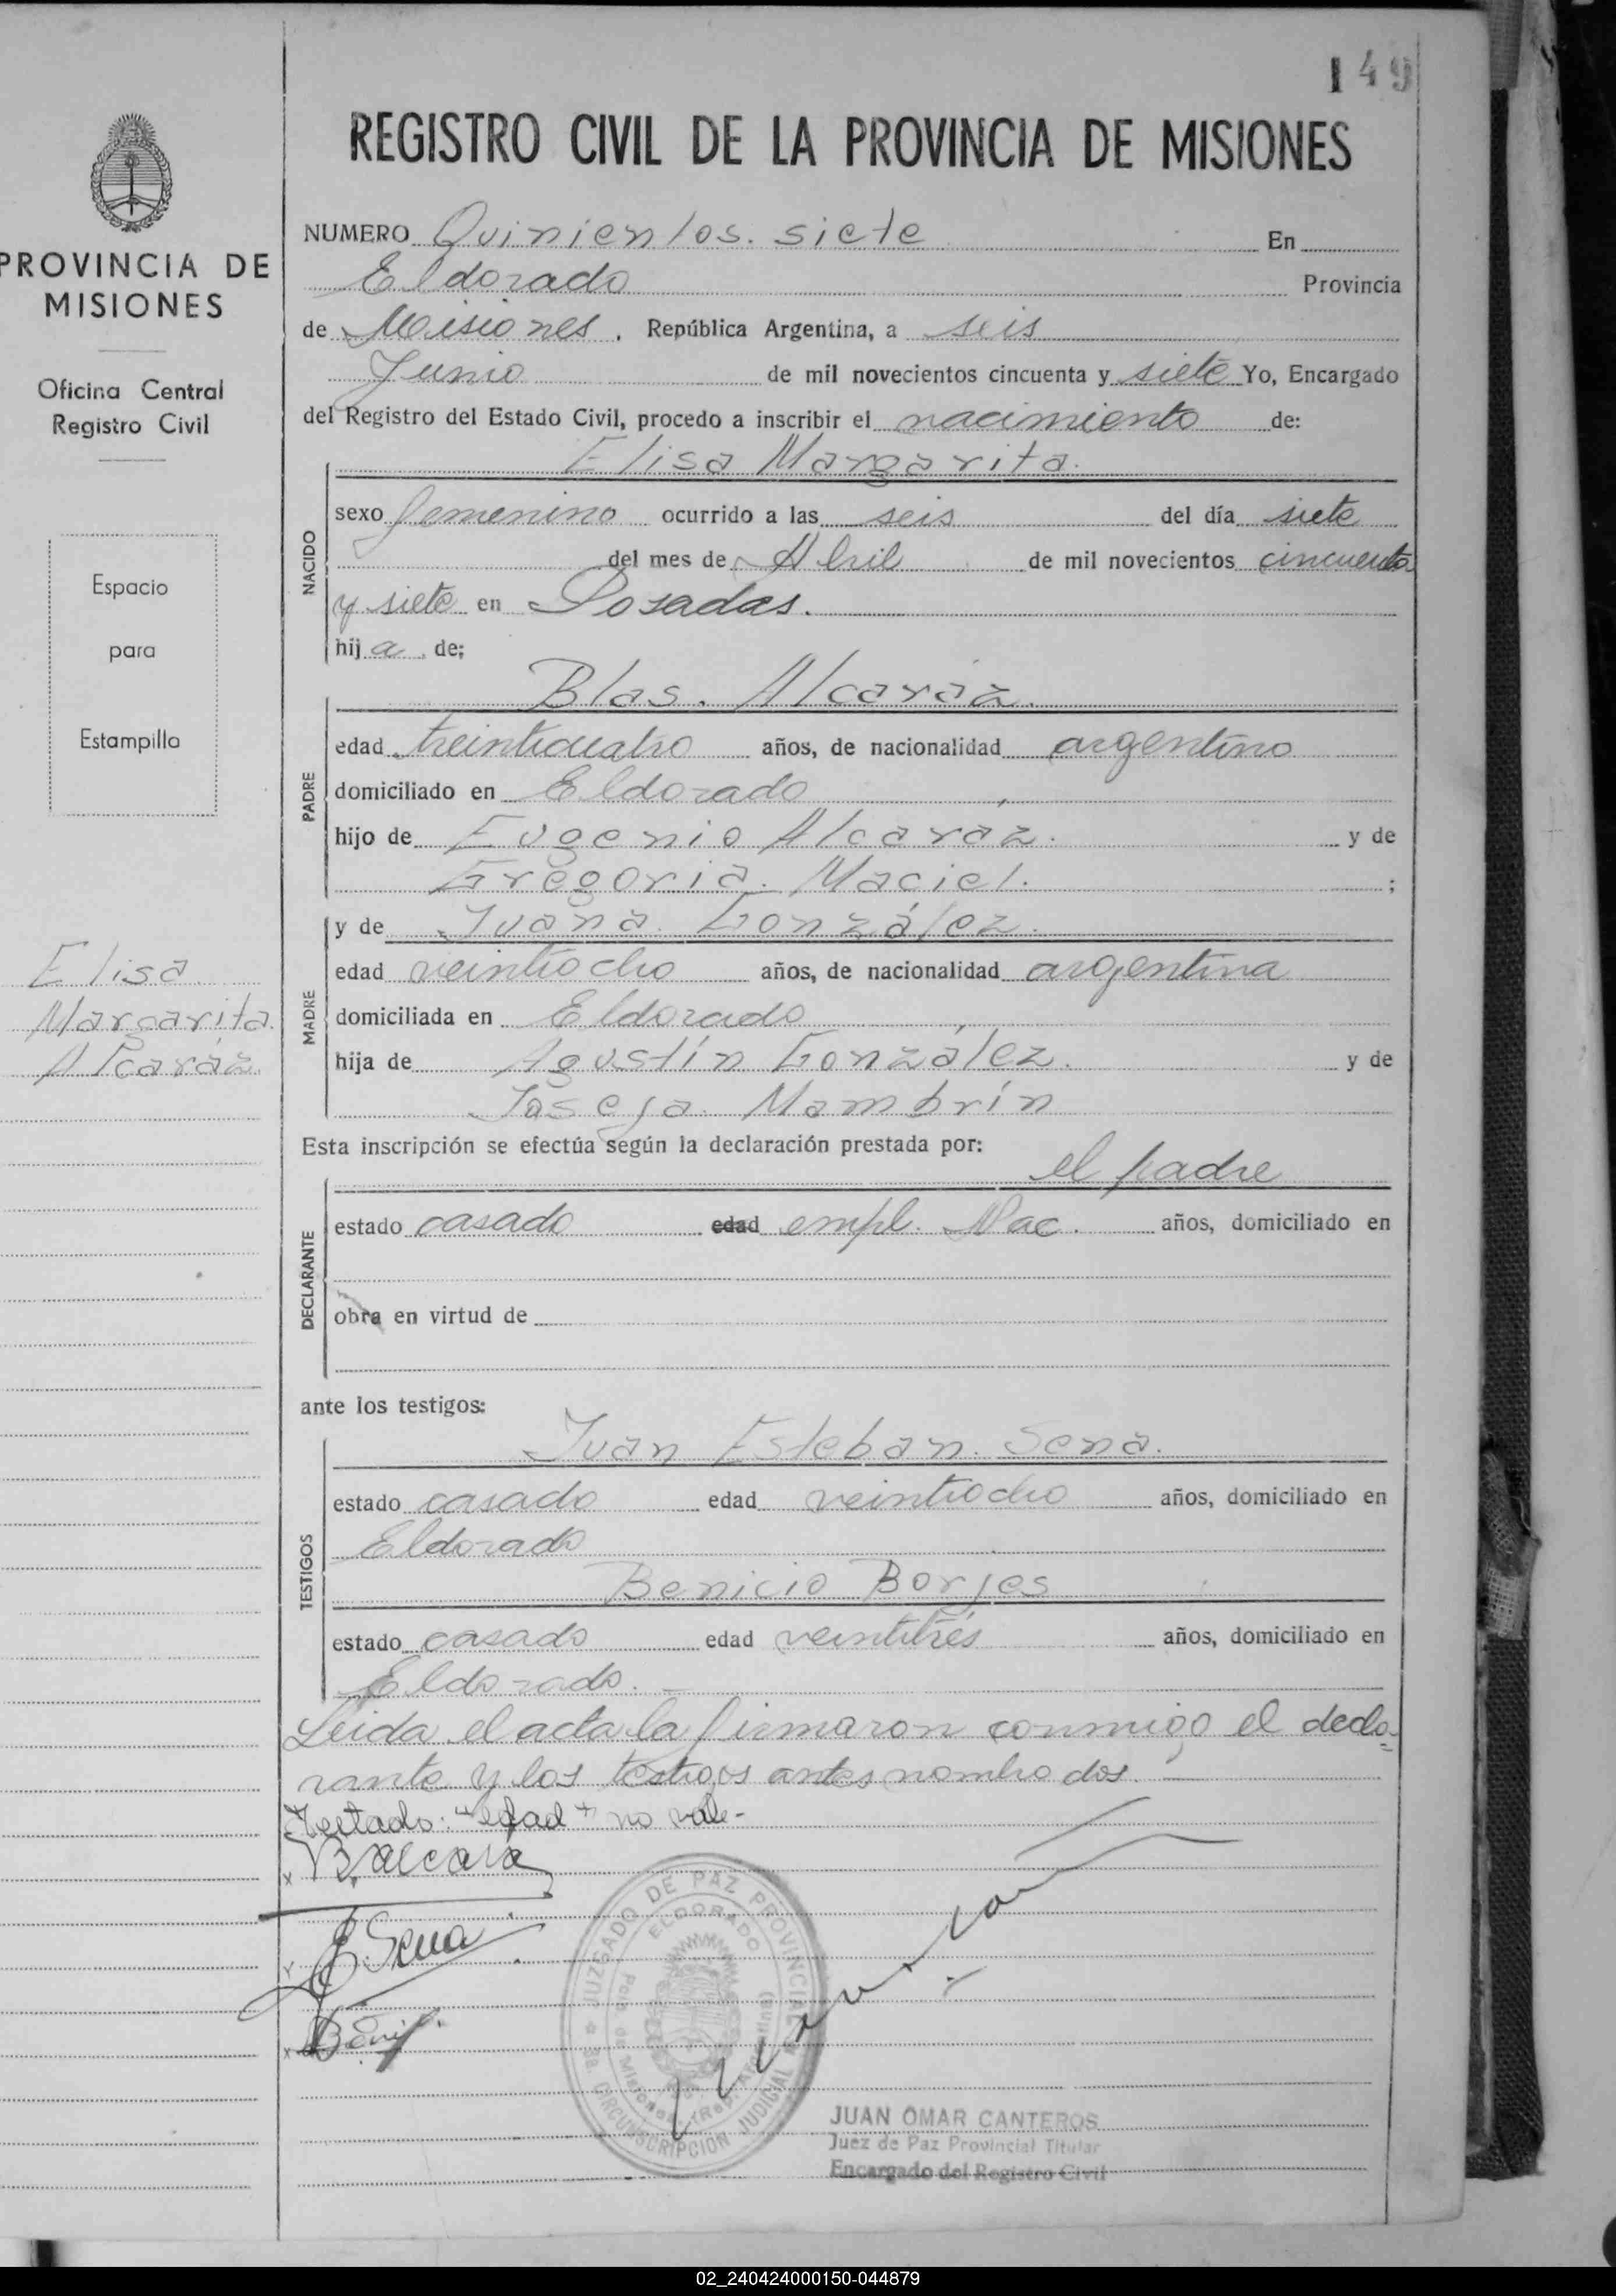 149
REGISTRO CIVIL DE LA PROVINCIA DE MISIONES
PROVINCIA DE
MISIONES
Oficina Central
Registro Civil
Espacio
para
Estampilla
Elisa
Margarita
Alcaráz.
NUMERO Quinientos. siete En
Eldorado Provincia
de Misiones, República Argentina, a seis
Junio de mil novecientos cincuenta y siete Yo, Encargado
del Registro del Estado Civil, procedo a inscribir el nacimiento de:
Elisa Margarita.
NACIDO
sexo femenino ocurrido a las seis del día siete
del mes de Abril de mil novecientos cincuenta
y siete en Posadas.
hija de;
Blas. Alcaraz.
PADRE
edad treinticuatro años, de nacionalidad argentino
domiciliado en Eldorado
hijo de Eugenio Alcaraz. y de
Gregoria. Maciel. ;
y de Juana. González.
MADRE
edad veintiocho años, de nacionalidad argentina
domiciliada en Eldorado
hija de Agustín González. y de
Mambrín
Esta inscripción se efectúa según la declaración prestada por:
el padre
DECLARANTE
estado casado edad empl. Nac. años, domiciliado en
obra en virtud de
ante los testigos:
Juan Esteban. Sena.
TESTIGOS
estado casado edad veintiocho años, domiciliado en
Eldorado
Benicio Borjes
estado casado edad veintitrés años, domiciliado en
Eldorado. -
Leida el acta la firmaron conmigo el decla-
rante y los testigos antes nombrados. -
Testado: "edad" no vale-
B. Alcaraz
J. Sena
JUZGADO DE PAZ PROVINCIAL
ELDORADO
Pcia. de Misiones (Rep. Argentina)
3a. CIRCUNSCRIPCION JUDICIAL
JUAN OMAR CANTEROS
Juez de Paz Provincial Titular
Encargado del Registro Civil
02_240424000150-044879